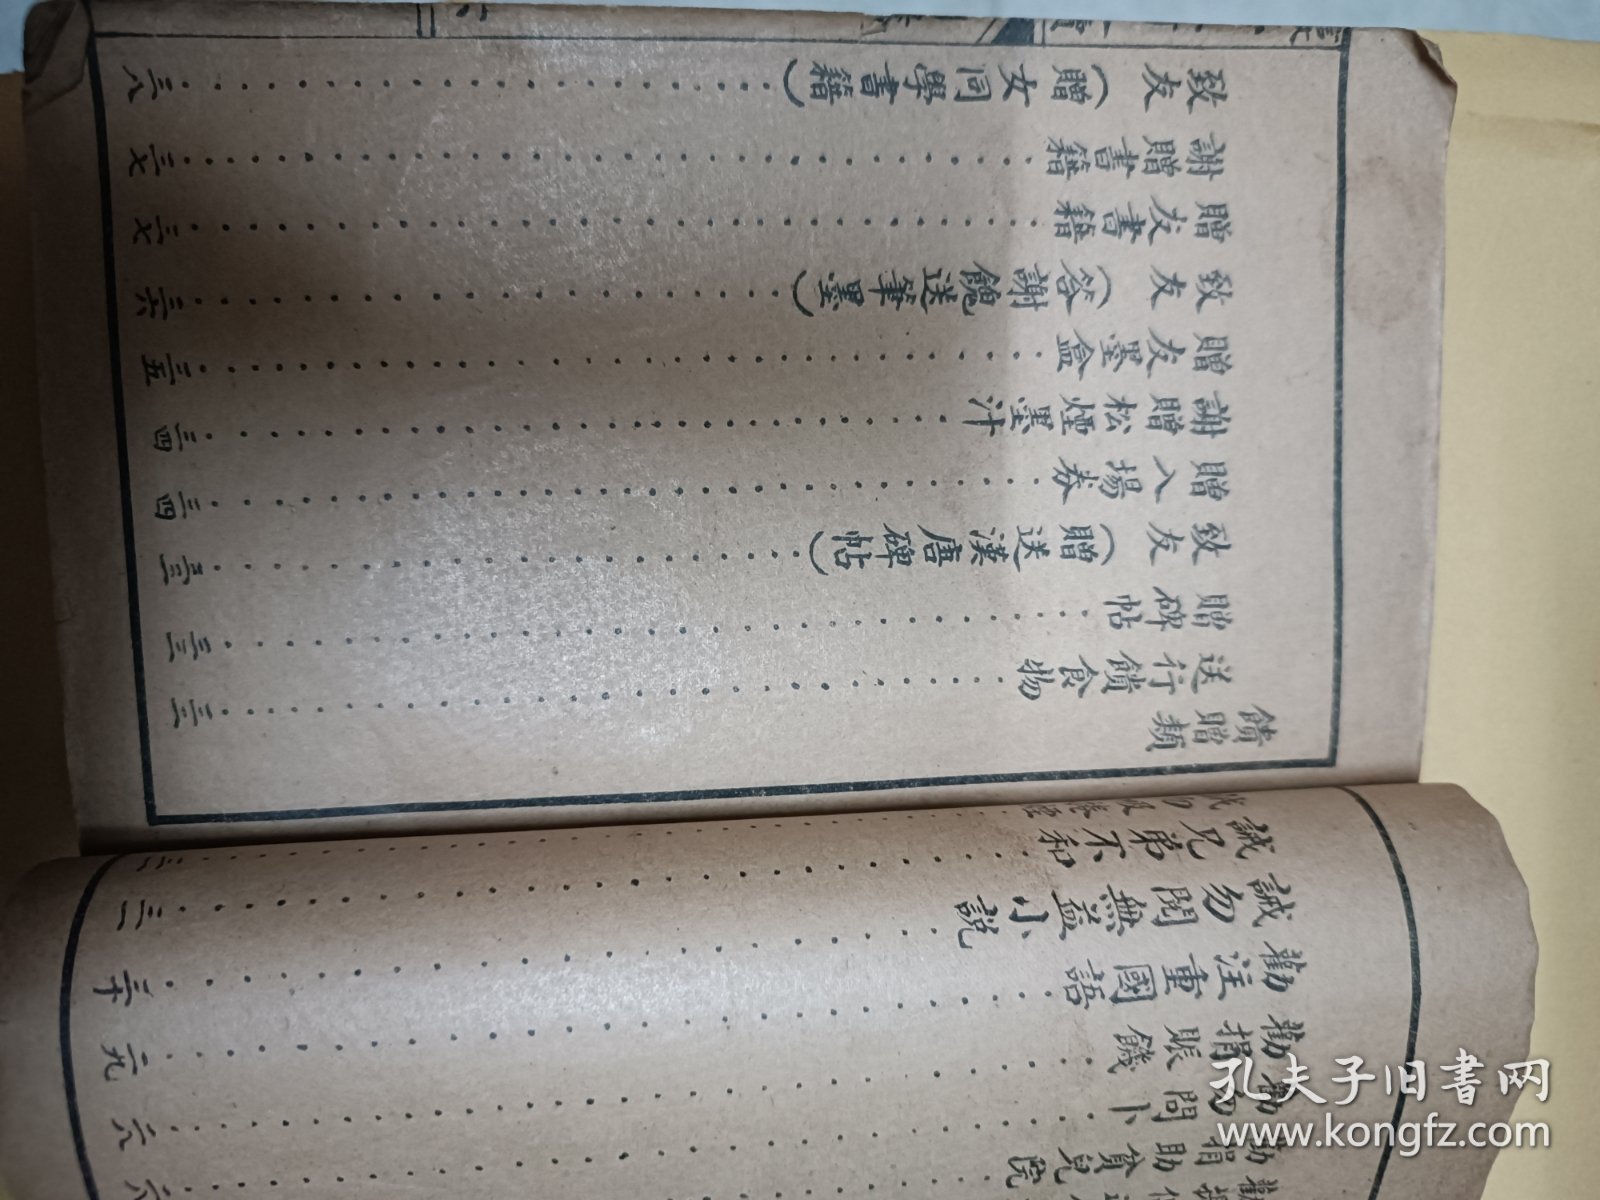 勸捐助貧兒院
勸勿問卜……二八
勸捐賑饑……二八
勸注重國語……二九
誡勿閱無益小說……三十
誡兄弟不和……三一
饋贈類
送行饋食物……三二
贈碑帖……三二
致友（贈送漢唐碑帖）……三三
贈入場券……三四
謝贈松煙墨汁……三四
贈友墨盒……三五
致友（答謝餽送筆墨）……三六
贈友書籍……三七
謝贈書籍……三七
致友（贈女同學書籍）……三八
孔夫子旧书网
www.kongfz.com